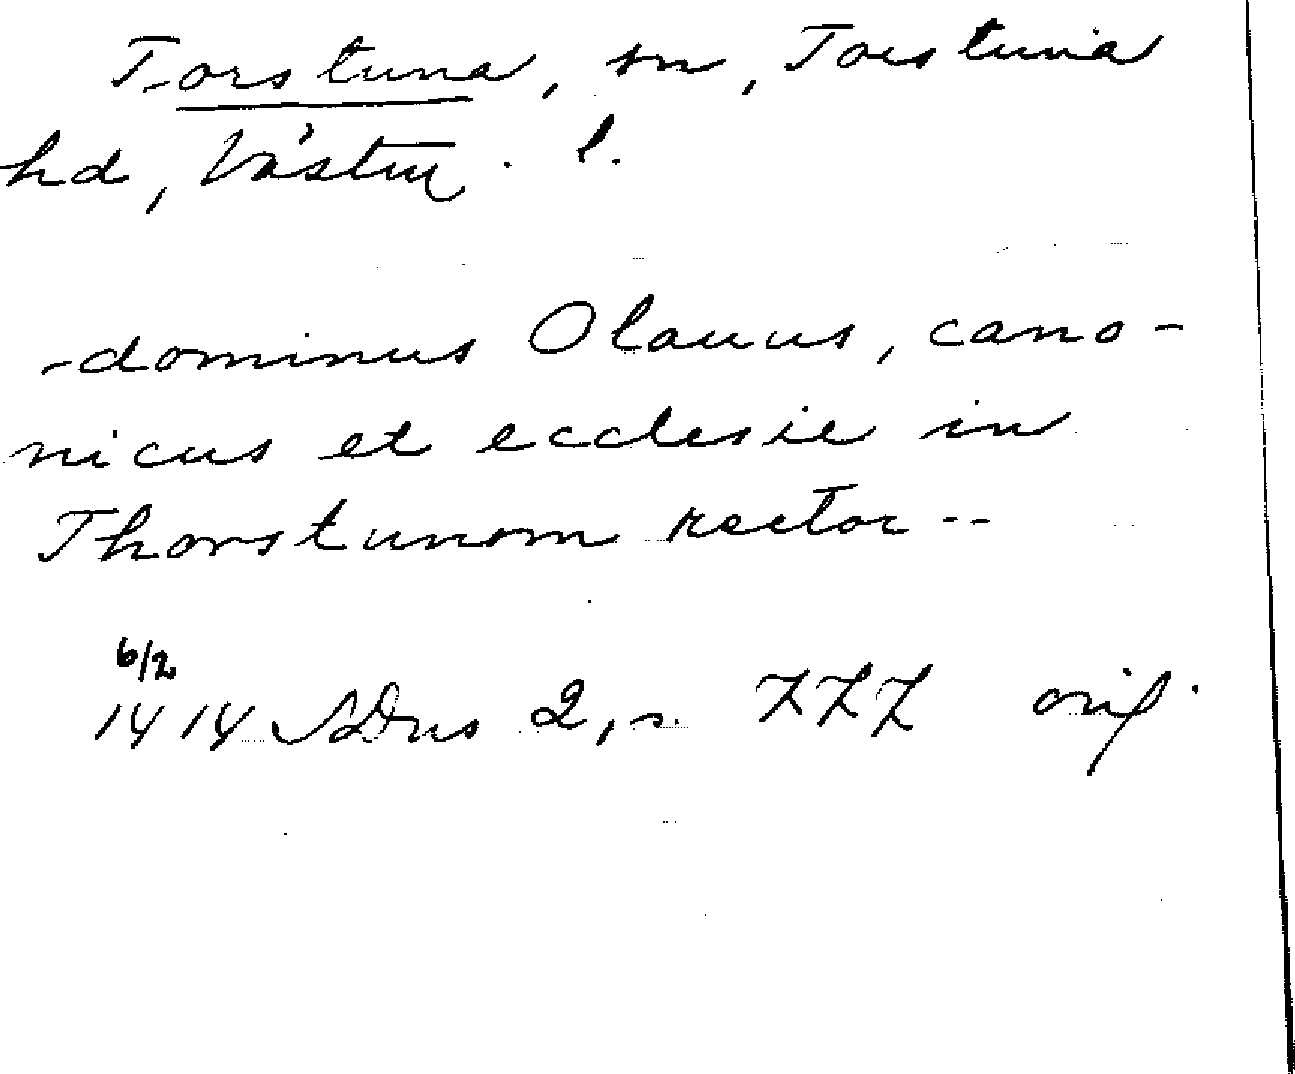 Torstuna, sn, Torstuna
hd, Västm. l.
-dominus Olauus, cano-
nicus et ecclesie in
Thorstunom rector --
6/2
1414 SDns 2, s. 777 orig.